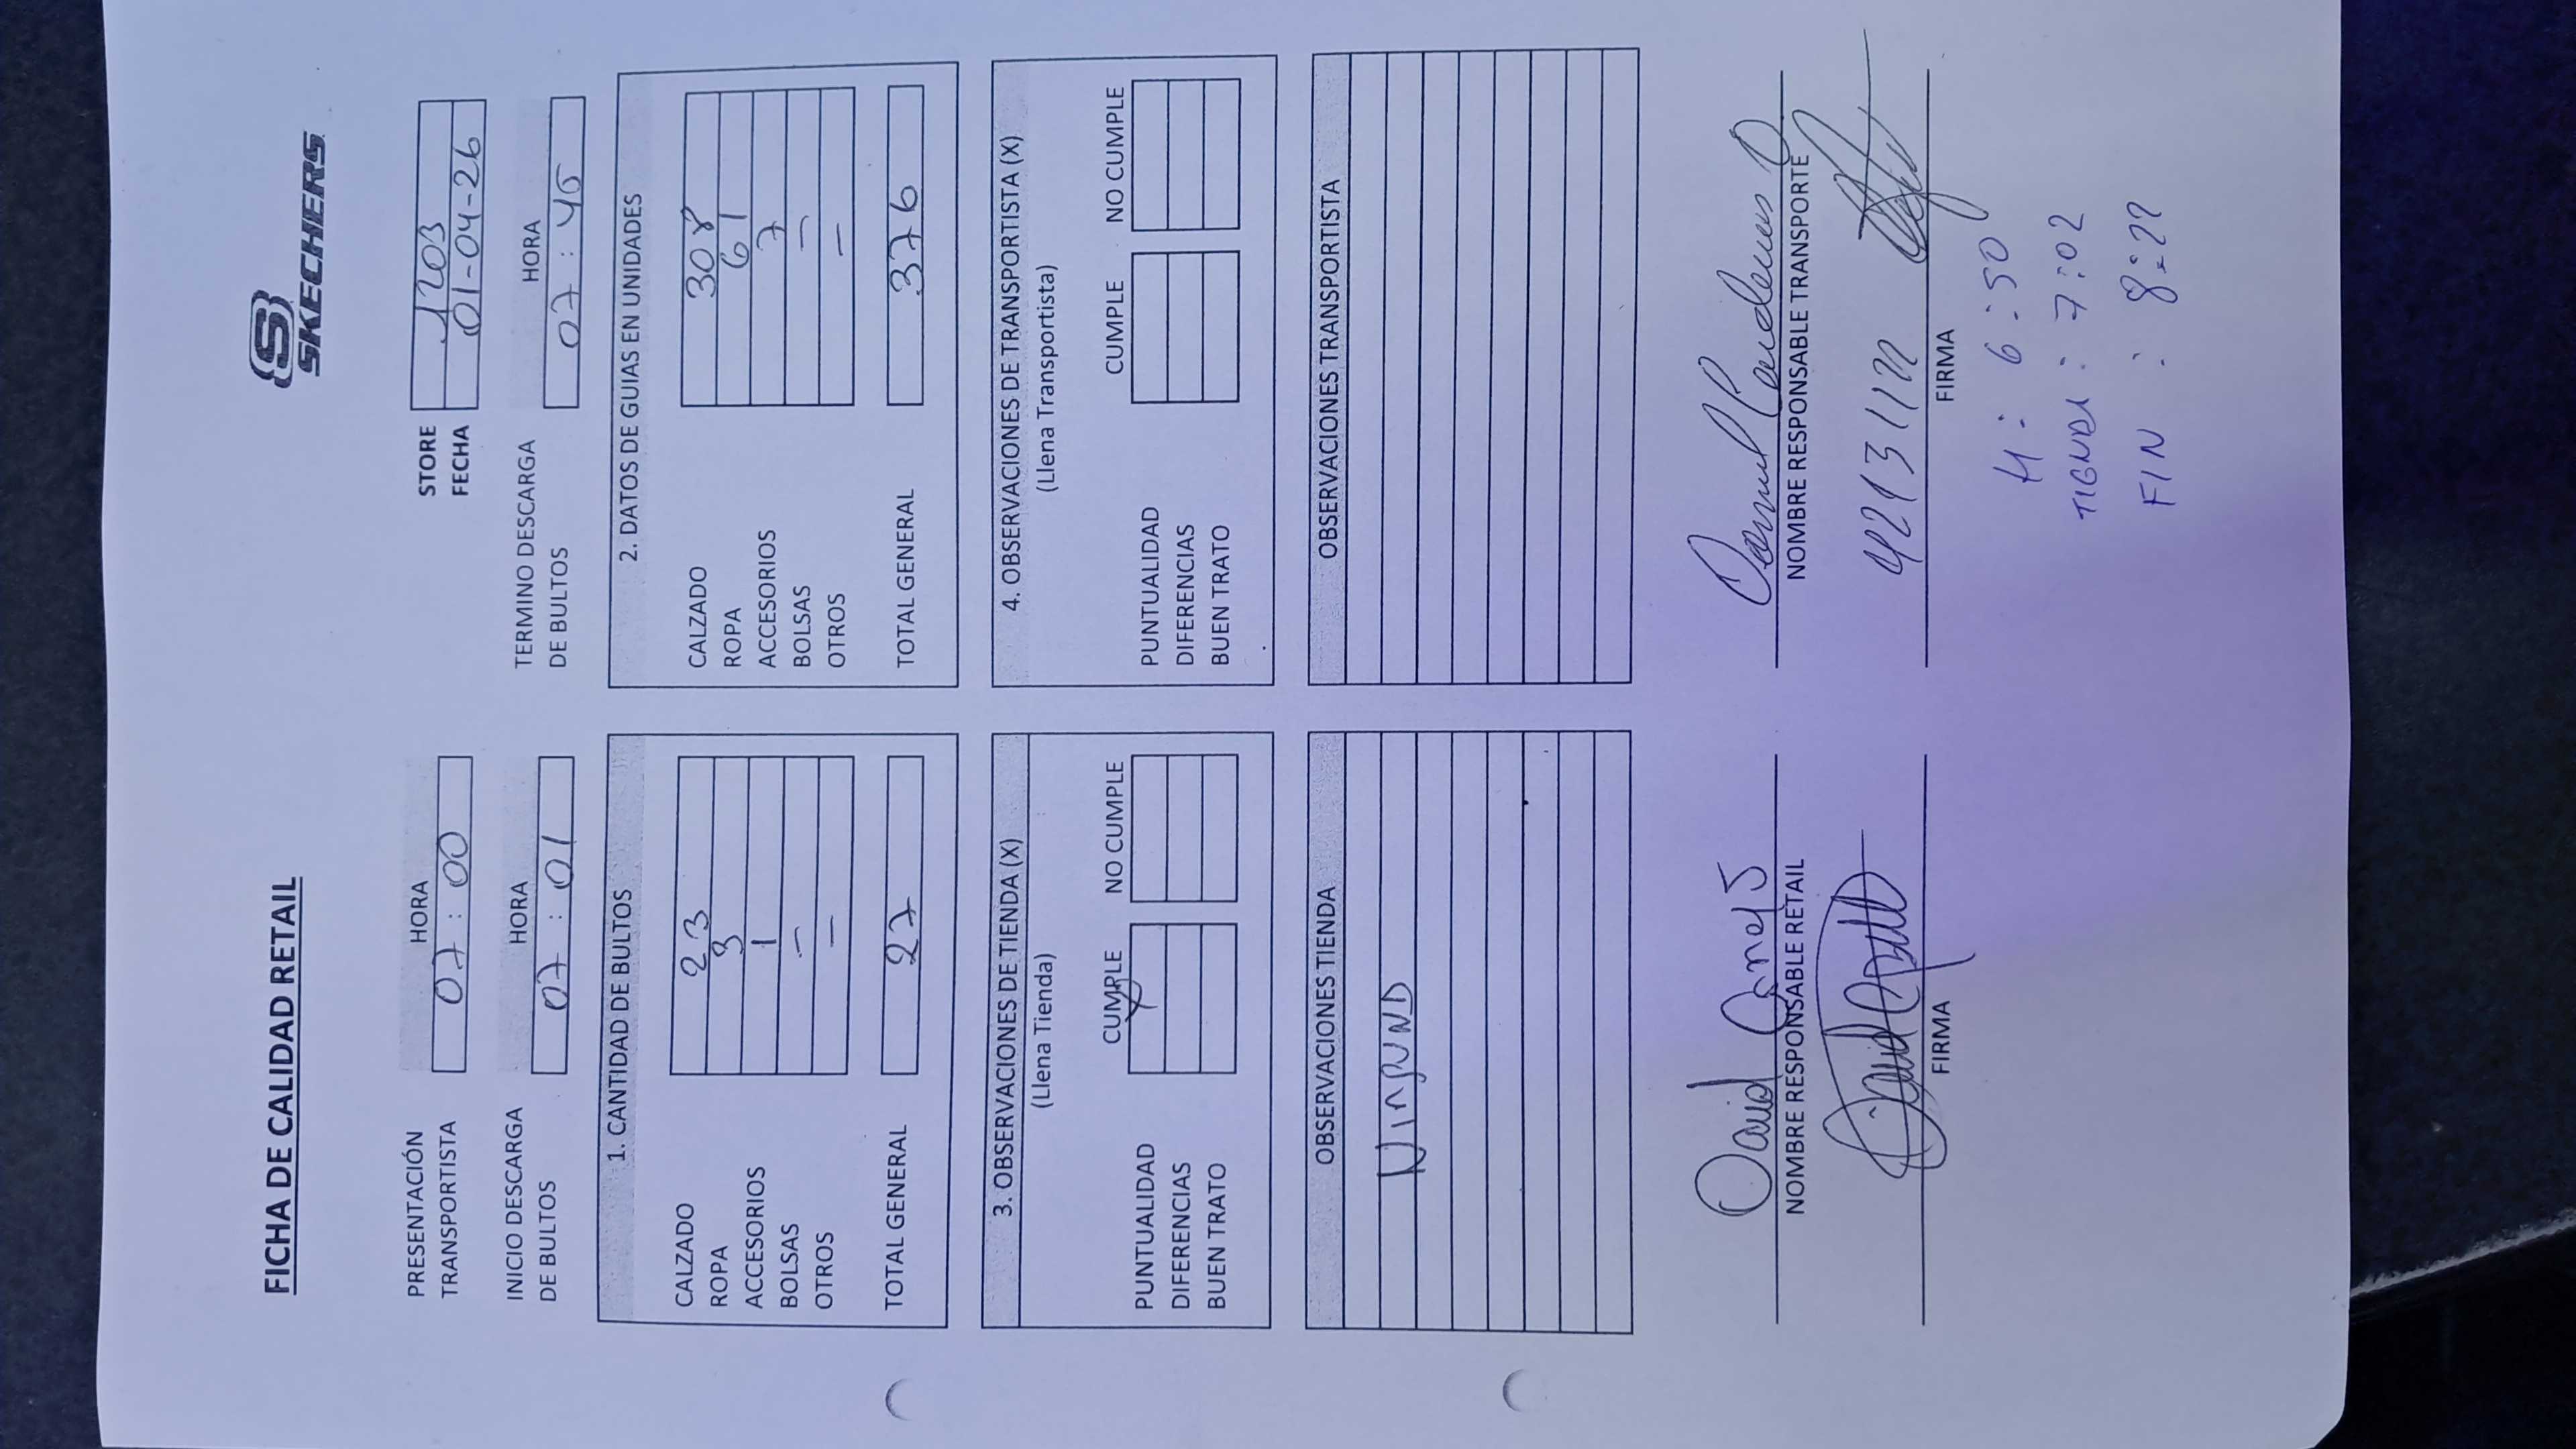 FICHA DE CALIDAD RETAIL
SKECHERS
STORE 1203
FECHA 01-04-26
PRESENTACIÓN TRANSPORTISTA HORA 07:00
INICIO DESCARGA DE BULTOS HORA 07:01
TERMINO DESCARGA DE BULTOS HORA 07:45
1. CANTIDAD DE BULTOS
CALZADO 23
ROPA 3
ACCESORIOS 1
BOLSAS –
OTROS –
TOTAL GENERAL 27
2. DATOS DE GUIAS EN UNIDADES
CALZADO 308
ROPA 61
ACCESORIOS 7
BOLSAS –
OTROS –
TOTAL GENERAL 376
3. OBSERVACIONES DE TIENDA (X)
(Llena Tienda)
CUMPLE NO CUMPLE
PUNTUALIDAD X
DIFERENCIAS
BUEN TRATO
4. OBSERVACIONES DE TRANSPORTISTA (X)
(Llena Transportista)
CUMPLE NO CUMPLE
PUNTUALIDAD
DIFERENCIAS
BUEN TRATO
OBSERVACIONES TIENDA
NINGUNO
OBSERVACIONES TRANSPORTISTA
David
NOMBRE RESPONSABLE RETAIL
FIRMA
NOMBRE RESPONSABLE TRANSPORTE
FIRMA
H: 6:50
TIENDA: 7:02
FIN : 8:22